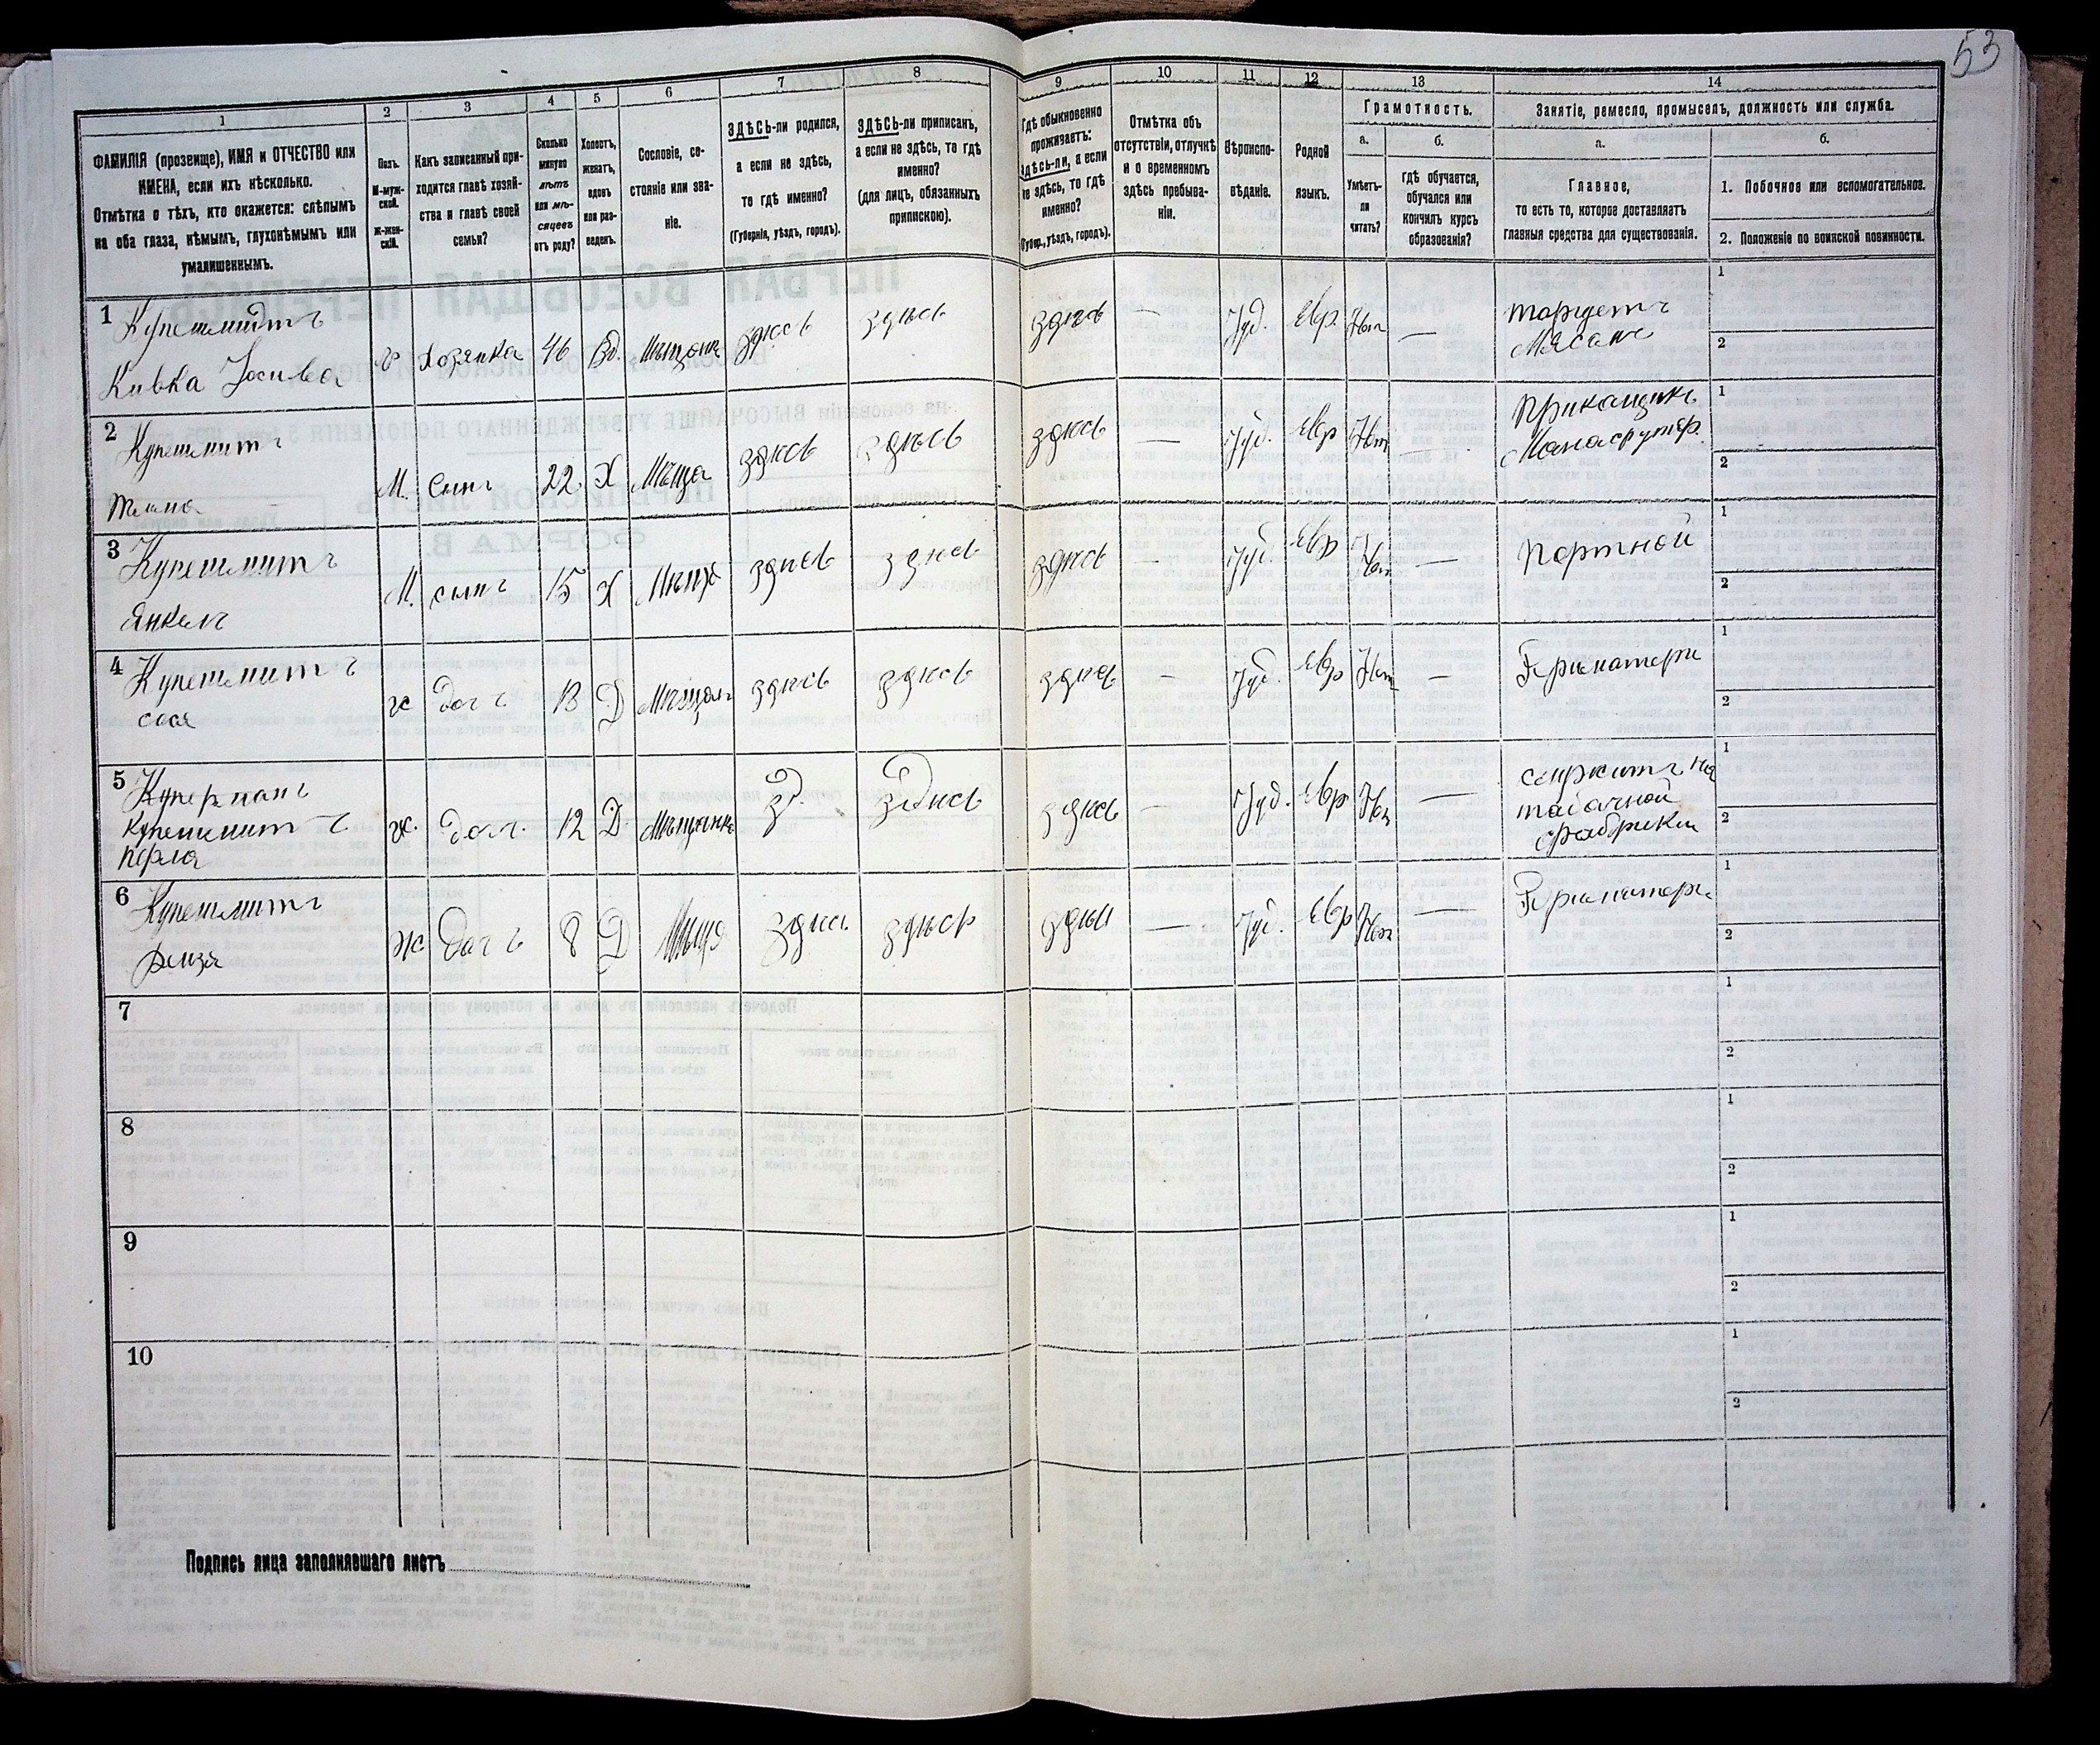 53
1
2
3
4
5
6
7
8
9
10
11
12
13
14
ФАМИЛІЯ (прозвище), ИМЯ и ОТЧЕСТВО или
ИМЕНА, если ихъ нѣсколько.
Отмѣтка о тѣхъ, кто окажется: слѣпымъ
на оба глаза, нѣмымъ, глухонѣмымъ или
умалишеннымъ.
Полъ.
М-муж-
ской.
Ж-жен-
скій.
Какъ записанный при-
ходится главѣ хозяй-
ства и главѣ своей
семьи?
Сколько
минуло
лѣтъ
или мѣ-
сяцевъ
отъ роду?
Холостъ,
женатъ,
вдовъ
или раз-
веденъ.
Сословіе, со-
стояніе или зва-
ніе.
ЗДѢСЬ-ли родился,
а если не здѣсь,
то гдѣ именно?
(Губернія, уѣздъ, городъ).
ЗДѢСЬ-ли приписанъ,
а если не здѣсь, то гдѣ
именно?
(для лицъ, обязанныхъ
припискою).
Гдѣ обыкновенно
проживаетъ:
здѣсь-ли, а если
не здѣсь, то гдѣ
именно?
(Губер., уѣздъ, городъ).
Отмѣтка объ
отсутствіи, отлучкѣ
и о временномъ
здѣсь пребыва-
ніи.
Вѣроиспо-
вѣданіе.
Родной
языкъ.
Грамотность.
а.
Умѣетъ-
ли
читать?
б.
гдѣ обучается,
обучался или
кончилъ курсъ
образованія?
Занятіе, ремесло, промыселъ, должность или служба.
а.
Главное,
то есть то, которое доставляетъ
главныя средства для существованія.
б.
1. Побочное или вспомогательное.
2. Положеніе по воинской повинности.
1 Купешмидтъ
Кивка Іосива
ж Хозяйка 46 Вд. Мѣщанк здѣсь здѣсь здѣсь — Іуд. Евр. Нѣт —
торгуетъ
Мясомъ
1
2
2 Купешмитъ
М. сынъ 22. Х Мѣща здѣсь здѣсь здѣсь — Іуд. Евр Нѣт —
Приказчикъ
1
2
3 Купешмитъ
Янкель
М. сынъ 15 Х Мѣща здѣсь здѣсь здѣсь — Іуд. Евр Нѣт —
Портной
1
2
4 Купешмитъ
сося
ж дочь 13 Д Мѣщан здѣсь здѣсь здѣсь — Іуд. Евр Нѣт —
При матери
1
2
5 Куперманъ
Купешмитъ
Перля
ж. доч. 12 Д Мѣщанка зд. здѣсь здѣсь — Іуд. Евр Нѣт —
служитъ на
табачной
фабрики
1
2
6 Купешмитъ
Рейзя
ж дочь 8 Д Мѣща здѣсь здѣсь здѣсь — Іуд. Евр Нѣт —
При матери
1
2
7
1
2
8
1
2
9
1
2
10
1
2
Подпись лица заполнявшаго листъ